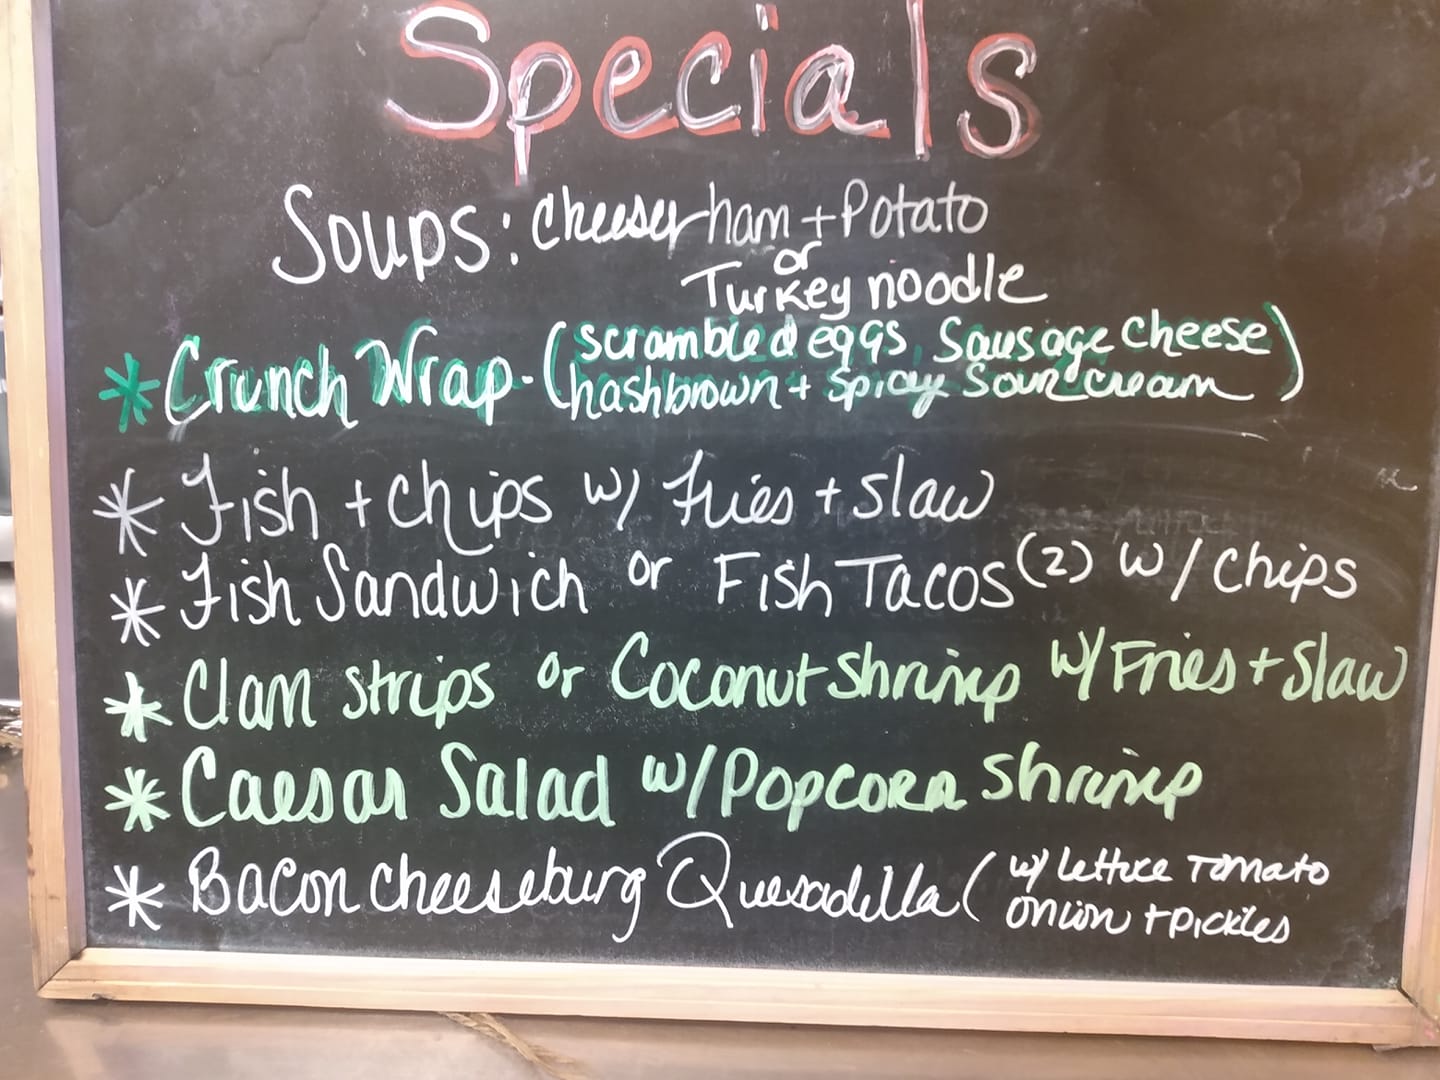 Specials
Soups: Cheesy ham + Potato
or
Turkey noodle
* Crunch Wrap - (scrambled eggs, Sausage cheese
hashbrown + Spicy Sour cream)
* Fish + chips w/ Fries + slaw
* Fish Sandwich or Fish Tacos (2) w/ chips
* Clam strips or Coconut Shrimp w/ Fries + Slaw
* Caesar Salad w/ Popcorn Shrimp
* Bacon cheeseburg Quesadilla (w/ lettuce Tomato
onion + pickles